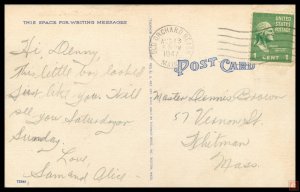 THIS SPACE FOR WRITING MESSAGES
Hi, Denny,
This little boy looked
just like you. Will
see you Saturday or
Sunday.
Love,
Sam and Alice.
OLD ORCHARD BEACH
1947
POST CARD
UNITED STATES
1 CENT 1
Master Dennis Brown
57 Vernon St.
Whitman
Mass.